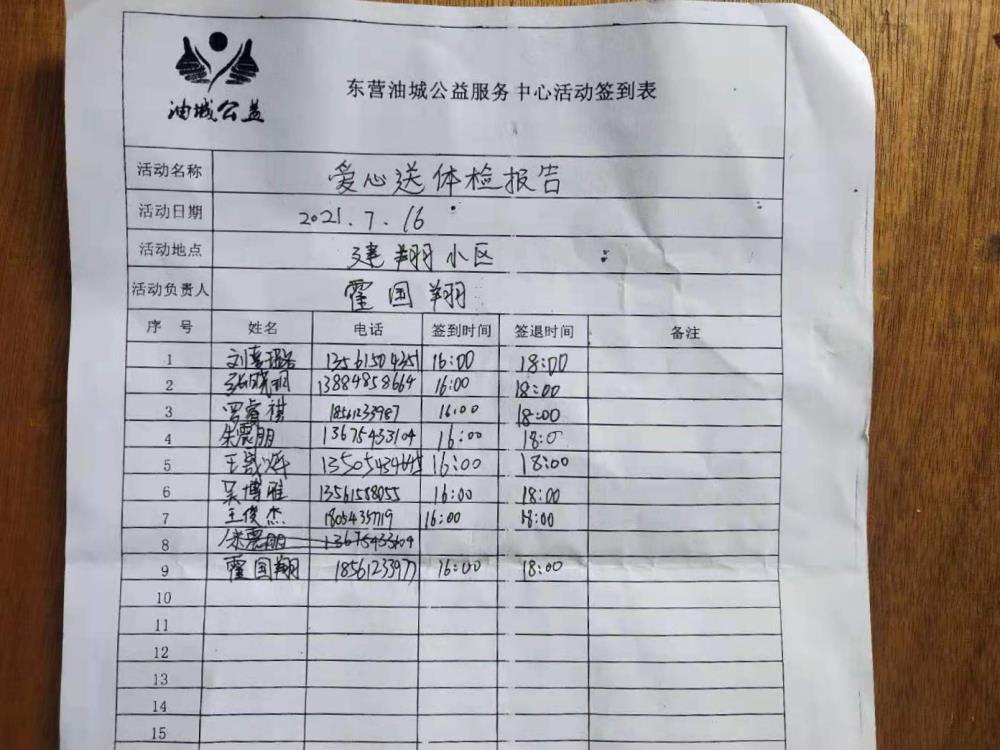 油城公益
东营油城公益服务中心活动签到表
活动名称 爱心送体检报告
活动日期 2021.7.16
活动地点 建翔小区
活动负责人 霍国翔
序号 姓名 电话 签到时间 签退时间 备注
1 13561504351 16:00 18:00
2 张晓明 13884858664 16:00 18:00
3 罗睿祺 18561233987 16:00 18:00
4 朱震朋 13675433104 16:00 18:0
5 13505434645 16:00 18:00
6 吴博雅 13561558055 16:00 18:00
7 王俊杰 1805435719 16:00 18:00
8 朱震朋 13675433104
9 霍国翔 18561233977 16:00 18:00
10
11
12
13
14
15